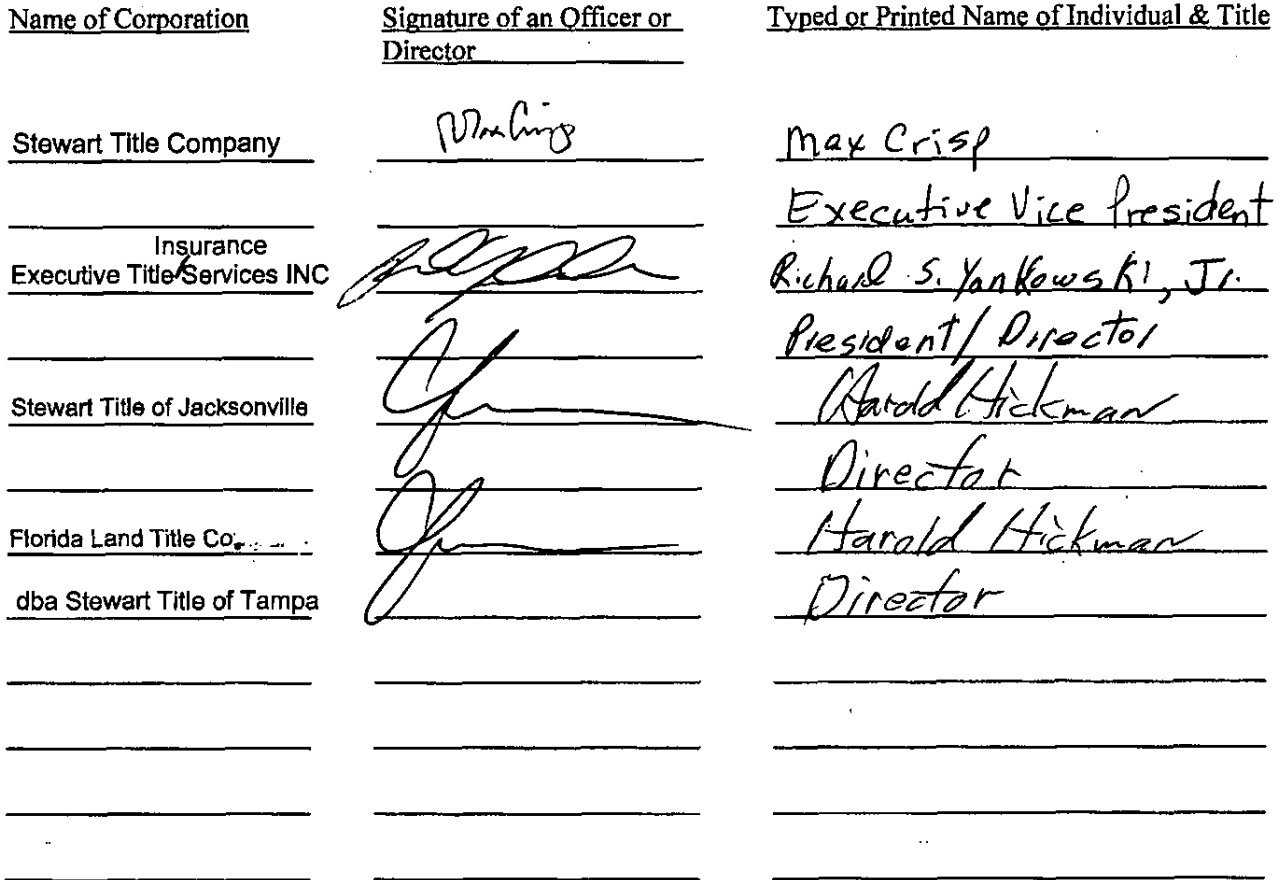 Name of Corporation Signature of an Officer or Director Typed or Printed Name of Individual & Title
Stewart Title Company Max Crisp Max Crisp
Executive Vice President
Insurance
Executive Title Services INC Richard S. Yankowski, Jr.
President/Director
Stewart Title of Jacksonville Harold Hickman
Director
Florida Land Title Co. Harold Hickman
dba Stewart Title of Tampa Director